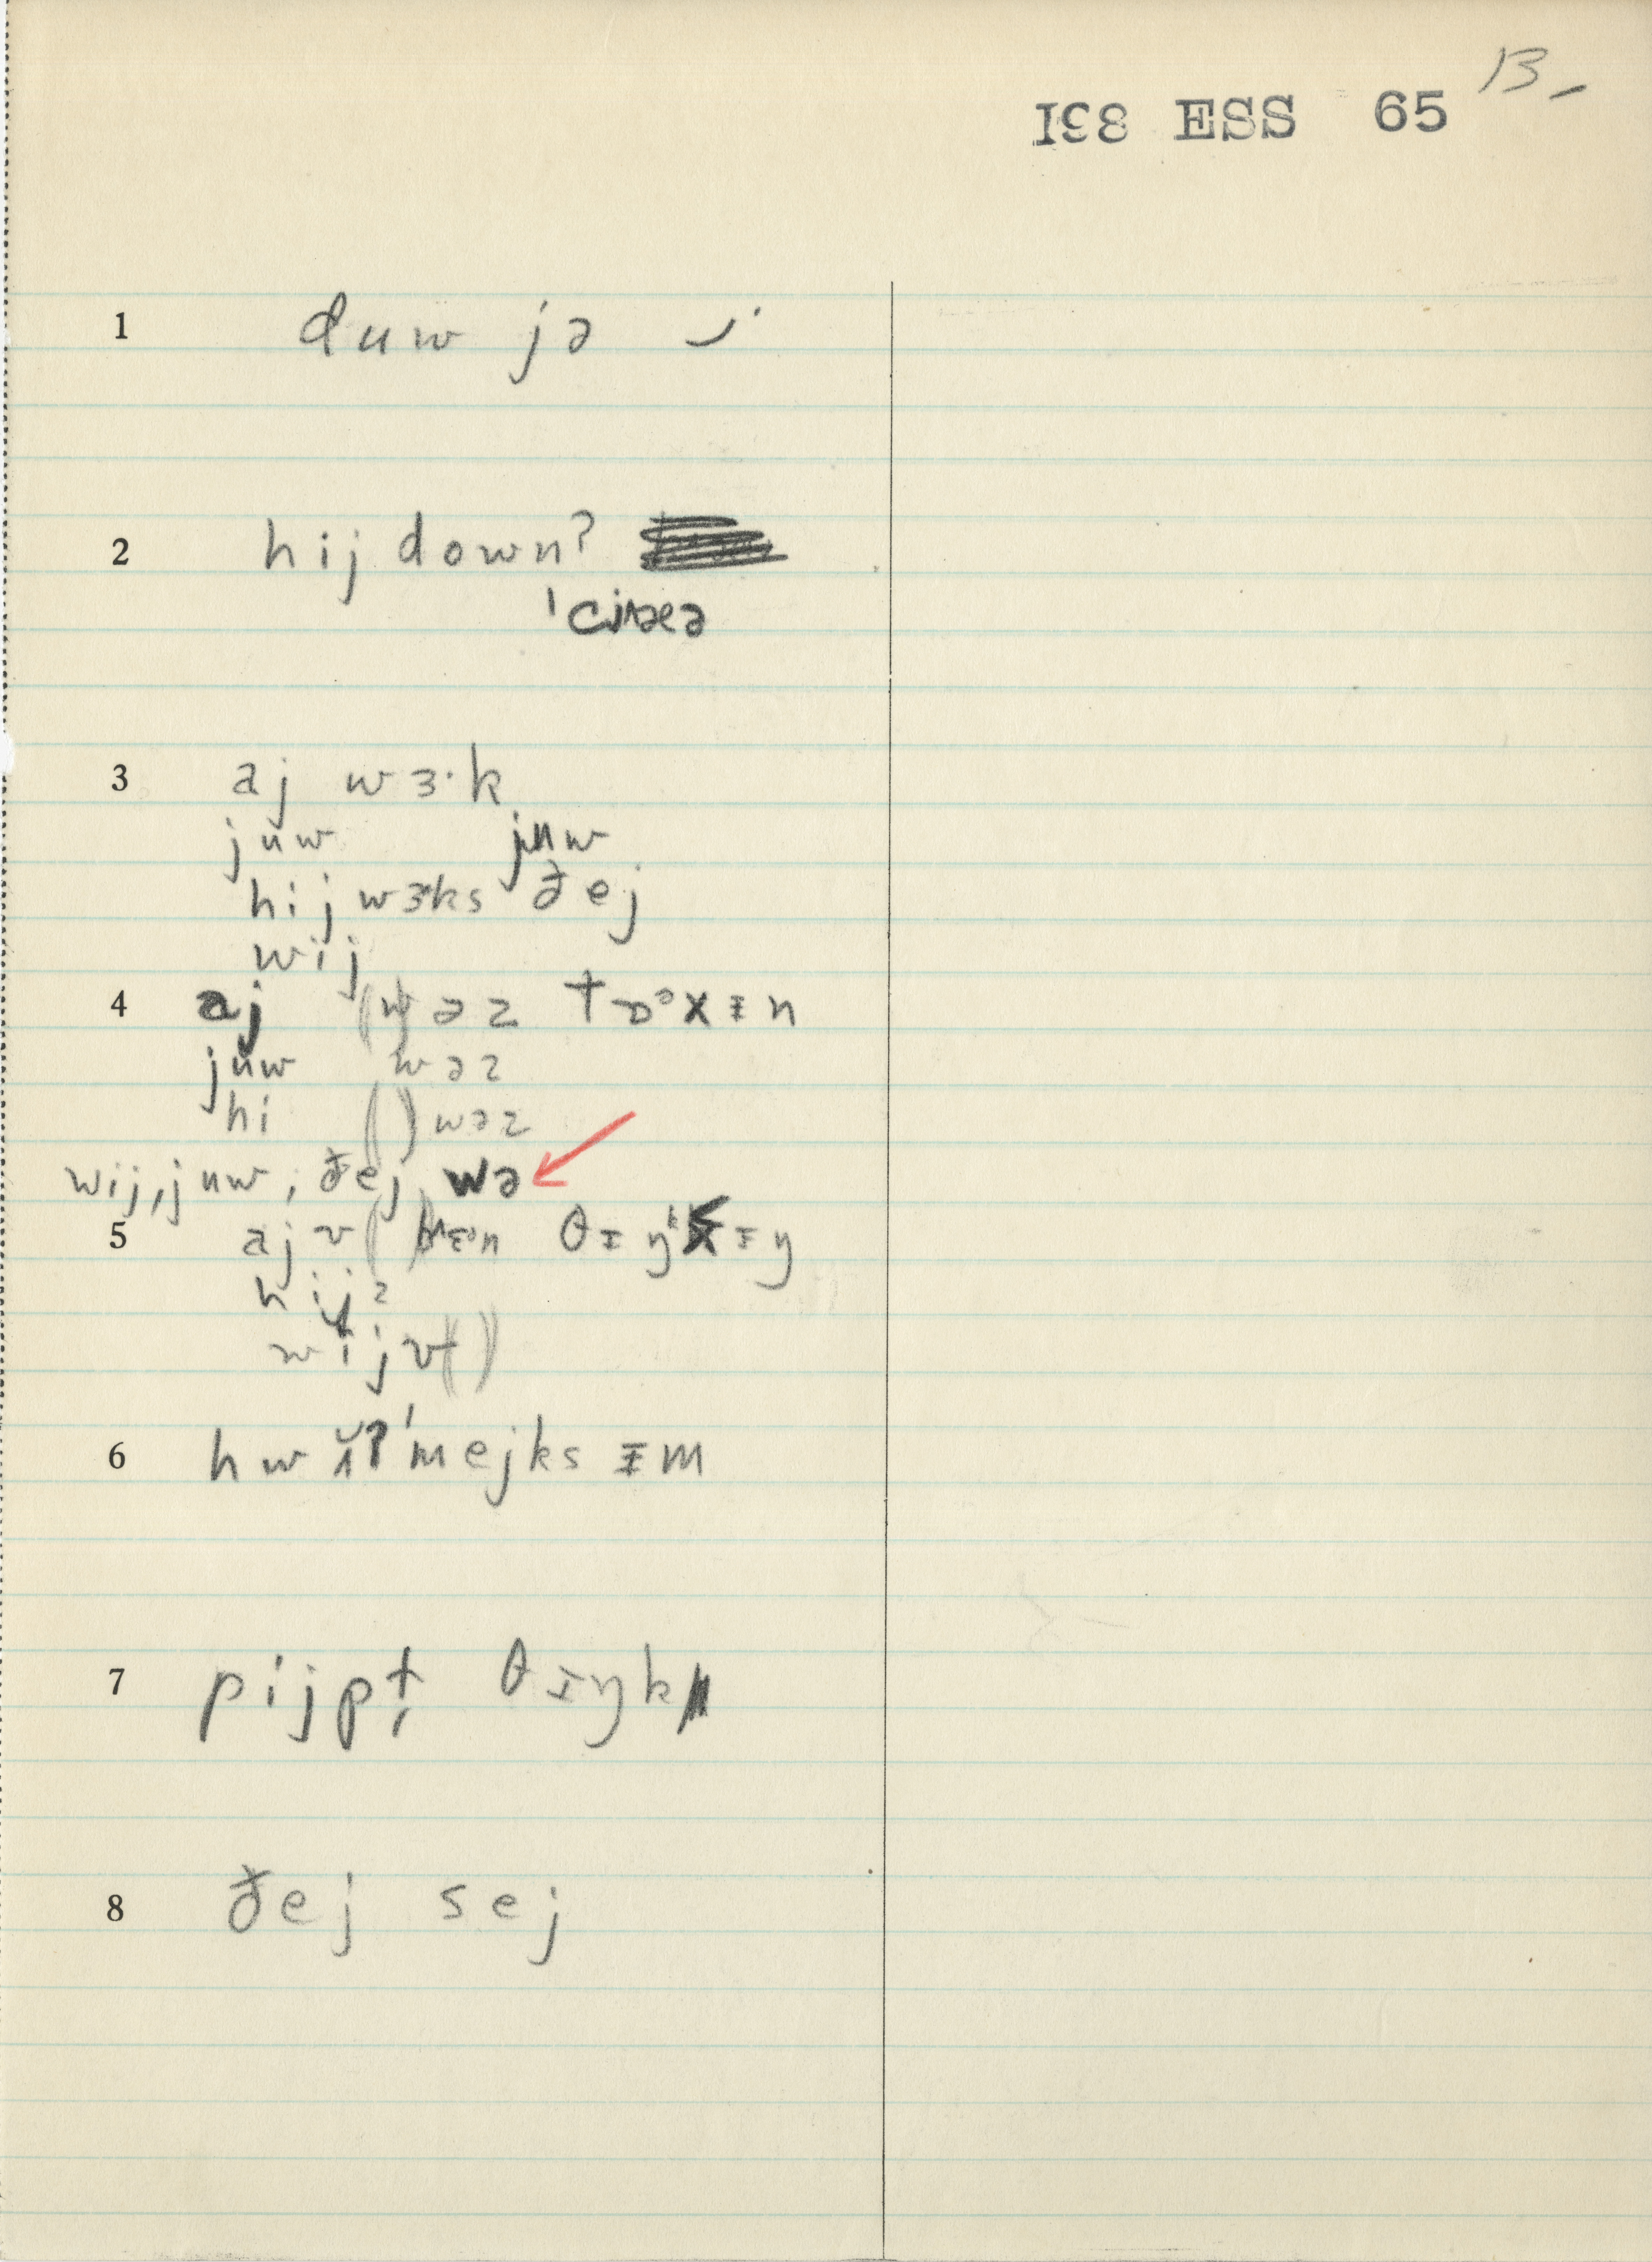 13
I38 ESS 65
1 duw jə
2 hij down?
3 aj wɜ·k
juw juw
hij wɜks ðej
wij
4 aj (w)əz tɒᵊkɪn
juw wəz
hi ( ) wəz
wij, juw, ðej wə
5 aj v ( ) θɪŋᵏkɪŋ
hijz
wijv( )
6 hw mejks ɪm
7 pijpɫ̩ θɪŋk
8 ðej sej